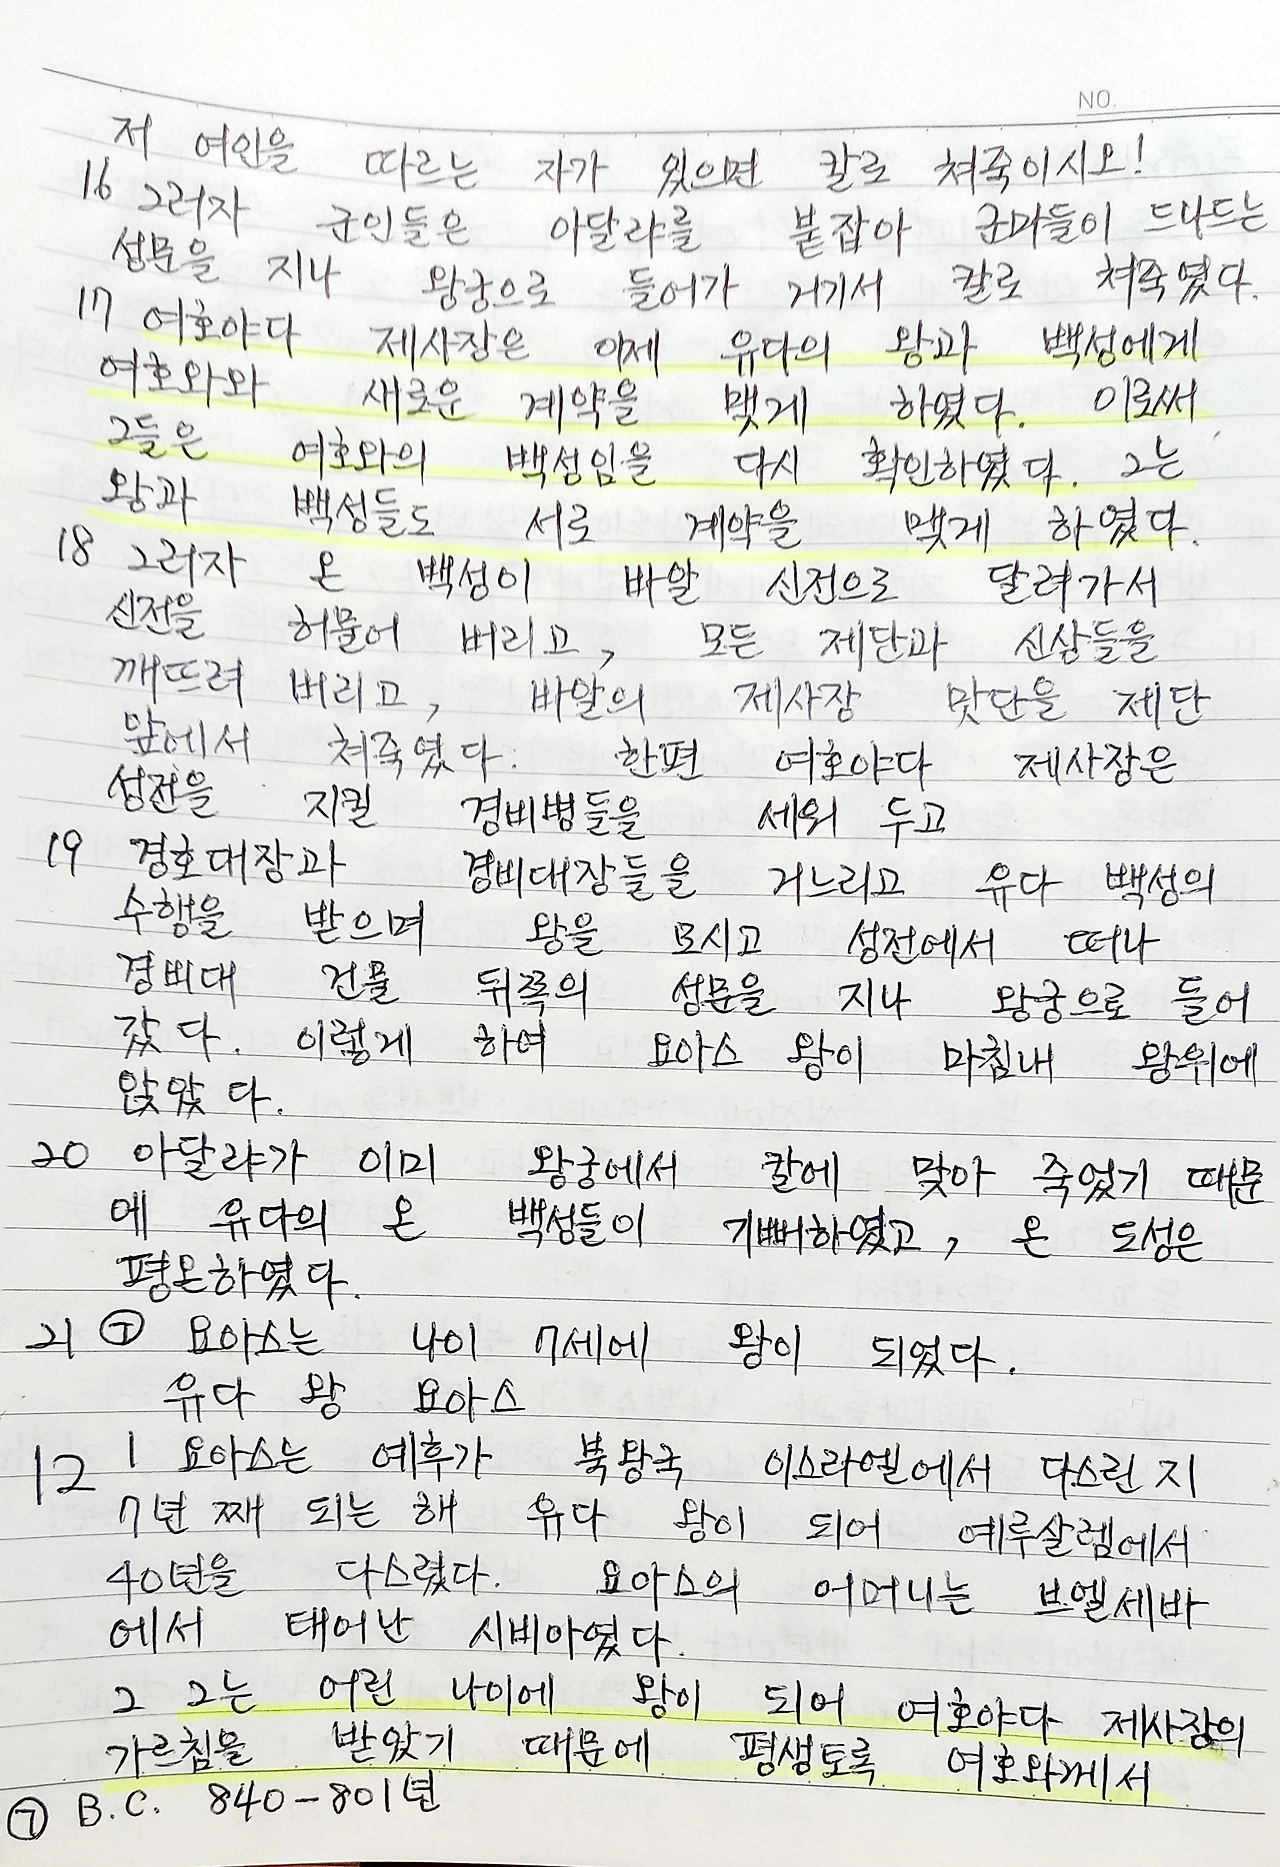 NO.
저 여인을 따르는 자가 있으면 칼로 쳐죽이시오!
16 그러자 군인들은 아달랴를 붙잡아 군마들이 드나드는
성문을 지나 왕궁으로 들어가 거기서 칼로 쳐죽였다.
17 여호야다 제사장은 이제 유다의 왕과 백성에게
여호와와 새로운 계약을 맺게 하였다. 이로써
그들은 여호와의 백성임을 다시 확인하였다. 그는
왕과 백성들도 서로 계약을 맺게 하였다.
18 그러자 온 백성이 바알 신전으로 달려가서
신전을 허물어 버리고, 모든 제단과 신상들을
깨뜨려 버리고, 바알의 제사장 맛단을 제단
앞에서 쳐죽였다. 한편 여호야다 제사장은
성전을 지킬 경비병들을 세워 두고
19 경호대장과 경비대장들을 거느리고 유다 백성의
수행을 받으며 왕을 모시고 성전에서 떠나
경비대 건물 뒤쪽의 성문을 지나 왕궁으로 들어
갔다. 이렇게 하여 요아스 왕이 마침내 왕위에
앉았다.
20 아달랴가 이미 왕궁에서 칼에 맞아 죽었기 때문
에 유다의 온 백성들이 기뻐하였고, 온 도성은
평온하였다.
21 ㉠ 요아스는 나이 7세에 왕이 되었다.
유다 왕 요아스
12 1 요아스는 예후가 북왕국 이스라엘에서 다스린 지
7년 째 되는 해 유다 왕이 되어 예루살렘에서
40년을 다스렸다. 요아스의 어머니는 브엘세바
에서 태어난 시비아였다.
2 그는 어린 나이에 왕이 되어 여호야다 제사장의
가르침을 받았기 때문에 평생토록 여호와께서
㉠ B.C. 840-801년